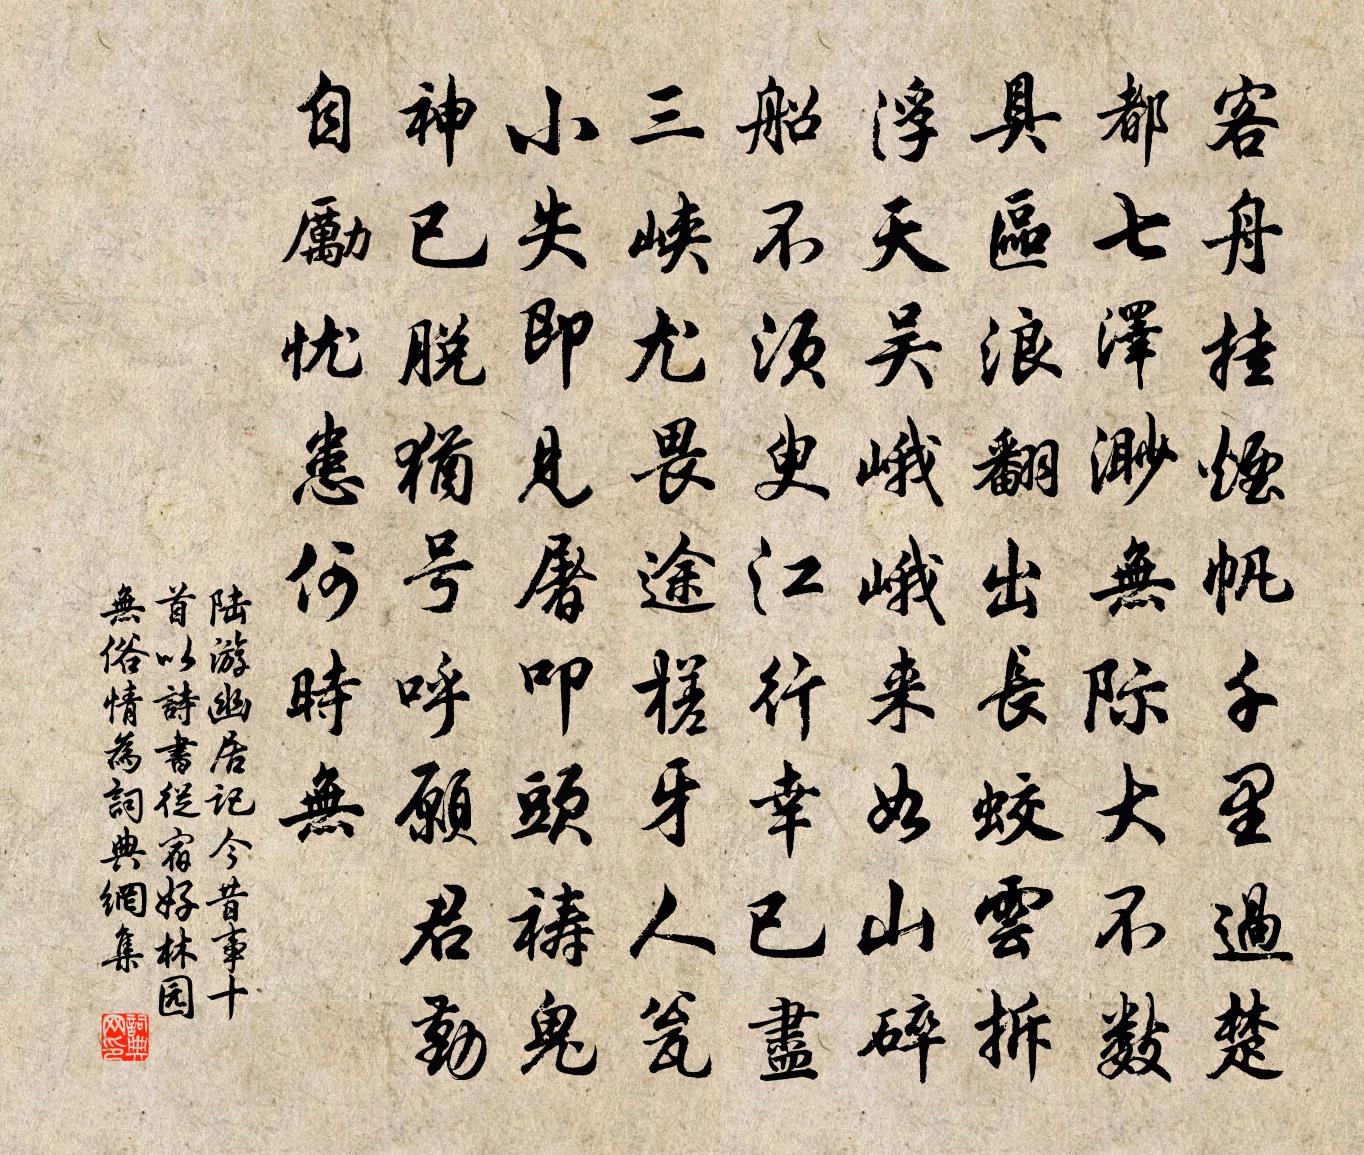 客舟挂煙帆千里過楚
都七澤渺無际大不数
具區浪翻出長蛟雲拆
浮天吴峨峨来如山碎
船不須臾江行幸已盡
三峡尤畏途槎牙人瓮
小失即見屠叩頭祷鬼
神已脱猶号呼願君勤
自勵忧患何時無
陆游幽居记今昔事十
首以詩書從宿好林园
無俗情為詞典網集
詞典
网印